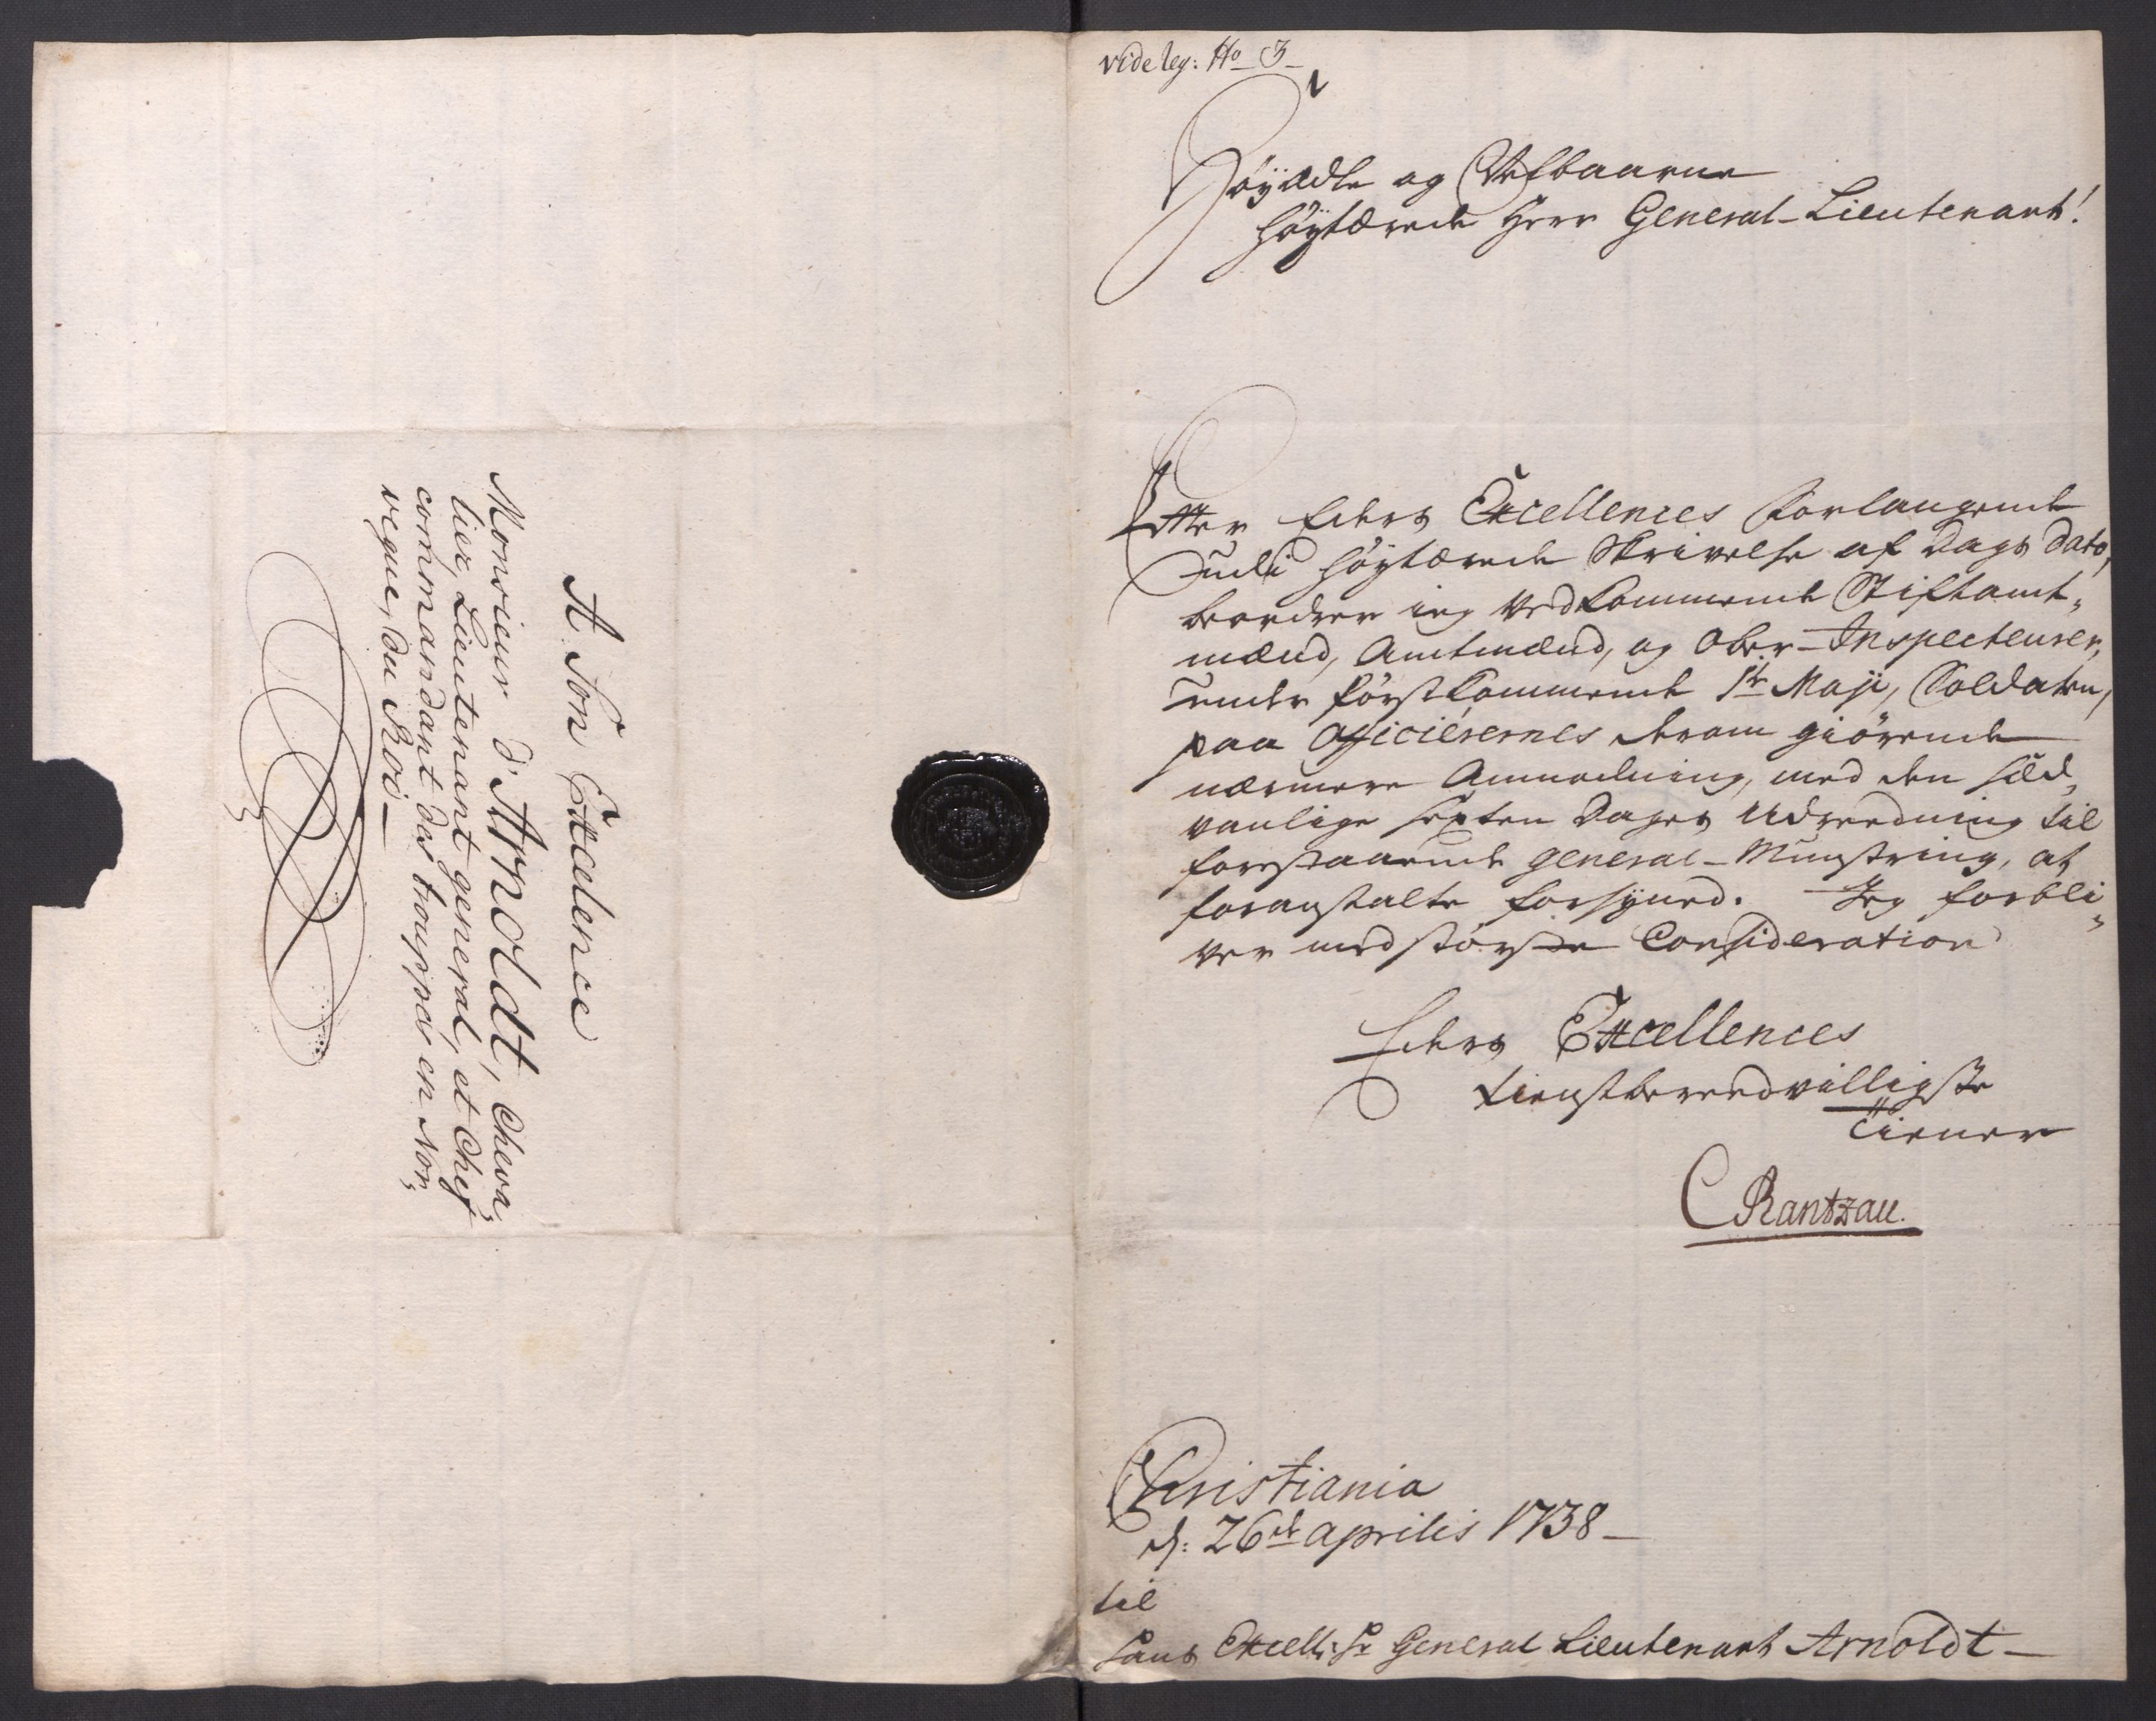 A Son Excelence
Monsieur d'Arnoldt, Cheva,
lier, Lieutenant general, et Chef
commandant des trouppes en Nor,
vegue, du Roi_
vide leg: No 3_
Höyædle og Velbaarne
Höytærede Herr General-Lieutenant!
Efter Eders Excellences Forlangende
udi höytærede Skrivelse af Dags Dato,
beordrer ieg Vedkommende Stiftamt,
mænd, Amtmænd, og Ober-Inspecteuren,
under förstkommende 1te Maji, Soldaten,
paa Officierernes derom giörende
nærmere Anmodning, med den sæd,
vanlige sexten Dages Udreedning til
forestaaende General-Mynstring, at
foranstalte forsyned. Jeg forbli,
ver med störste Consideration
Eders Excellences
tienstbereedvilligste
tiener
C Rantzau.
Christiania
d: 26de Aprilis 1738_
til
Hans Excell: Hr General Lieutenant Arnoldt_